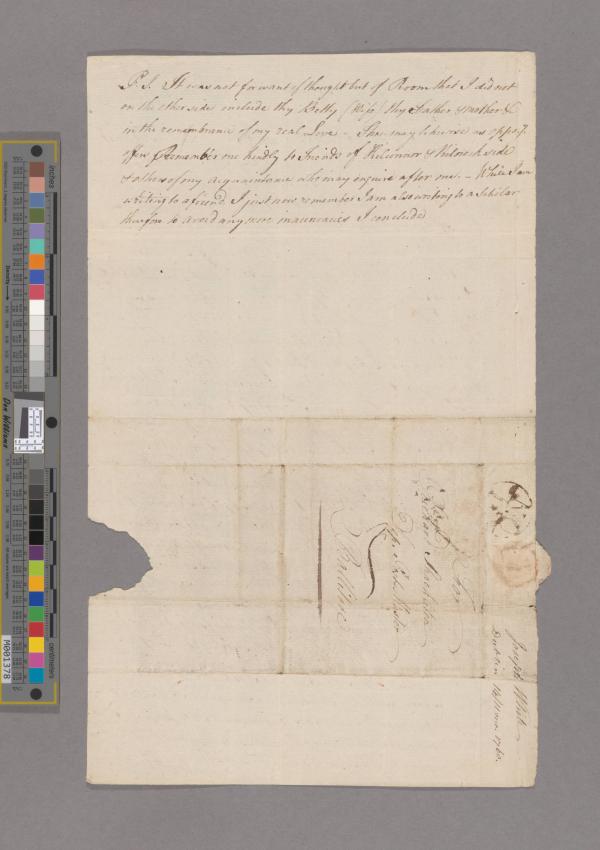 P.S. It was not for want of thought but of Room that I did not
on the other side include thy Betty (Wife) thy Father & mother &c
in the remembrance of my real Love - Thou may likewise as
offer Remember me kindly to Friends of side
& others of my acquaintance who may enquire after me. - While I am
writing to a friend I just now remember I am also writing to a Scholar
therefore to avoid any more inaccuracies I conclude
For
Richard Shackleton
Ballitore
Joseph White
Dublin 1760.
inches
centimeters
Don Williams
M001378